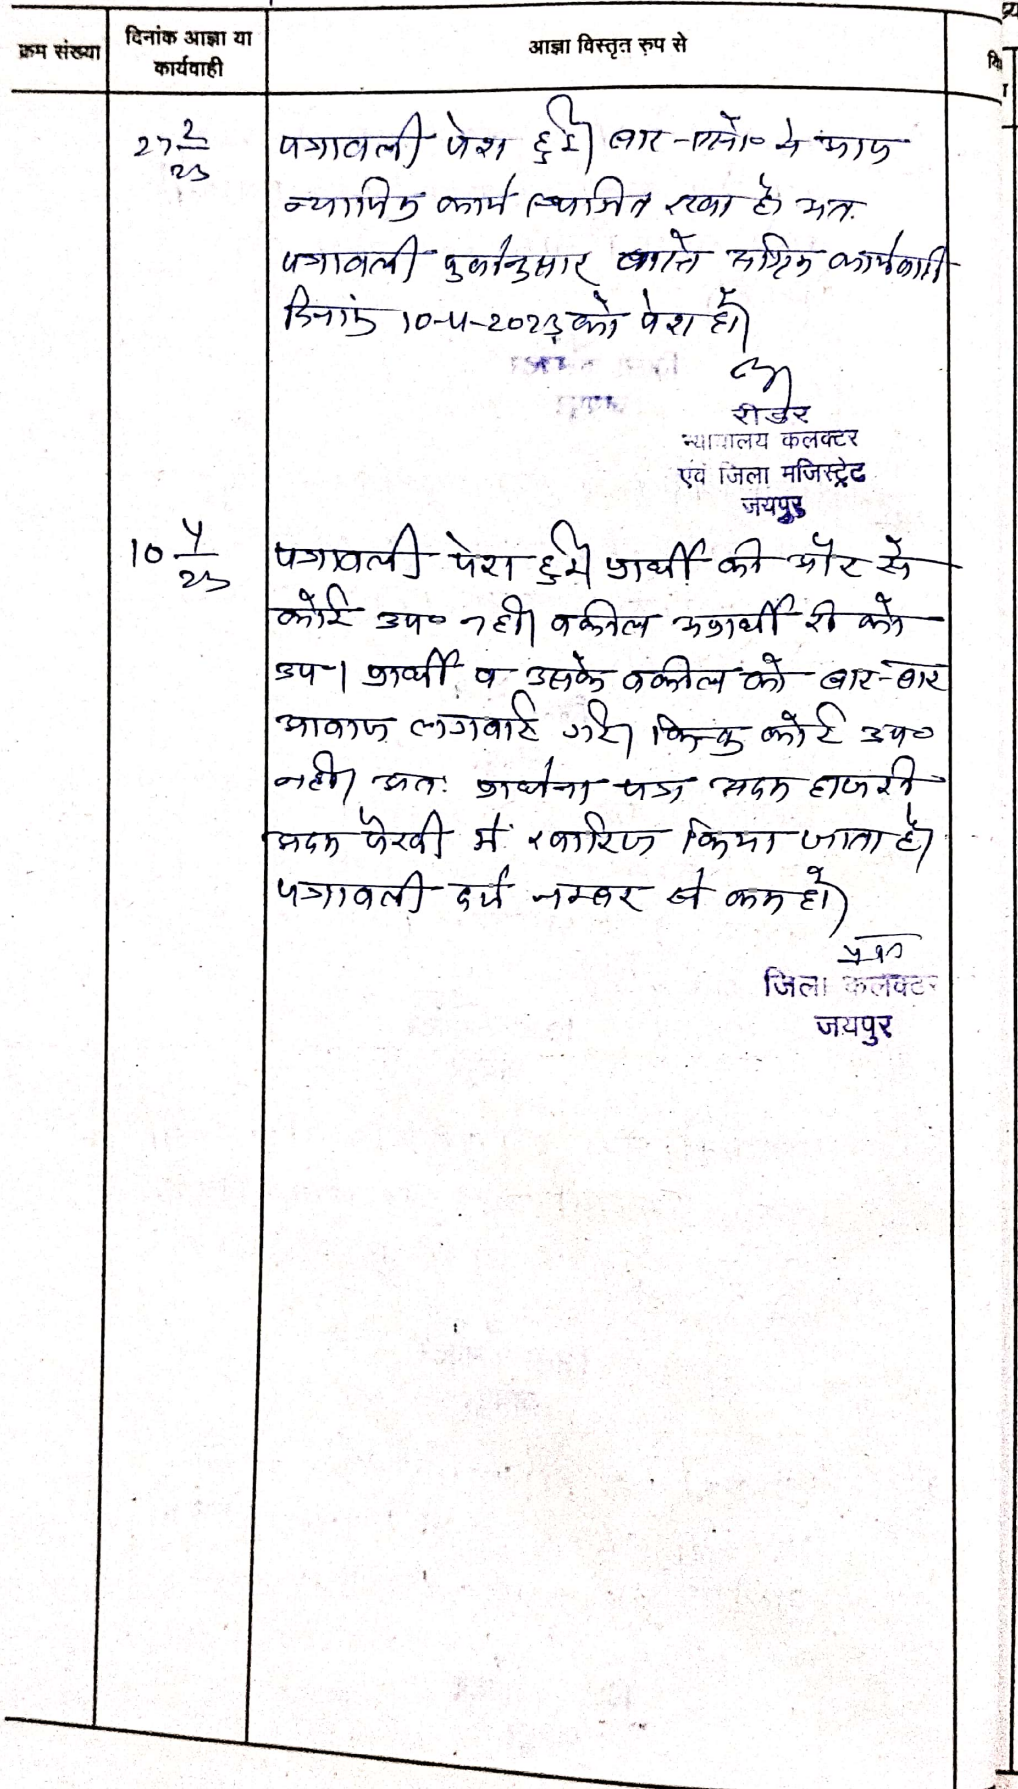 क्रम संख्या
दिनांक आज्ञा या
कार्यवाही
आज्ञा विस्तृत रुप से
27 2/23
पत्रावली पेश हुई। बार-एसो० ने आज
न्यायिक कार्य स्थगित रखा है। अतः
पत्रावली पूर्वानुसार वास्ते अग्रिम कार्यवाही
दिनांक 10-4-2023 को पेश हो।
रीडर
न्यायालय कलक्टर
एवं जिला मजिस्ट्रेट
जयपुर
10 4/23
पत्रावली पेश हुई। प्रार्थी की ओर से
कोई उप० नही। वकील अप्रार्थी
उप। प्रार्थी व उसके वकील को बार-बार
आवाज लगवाई गई। किन्तु कोई उप०
नही। अतः प्रार्थना पत्र अदम हाजरी
अदम पैरवी में खारिज किया जाता है।
पत्रावली दर्ज नम्बर से कम हो।
जिला कलक्टर
जयपुर